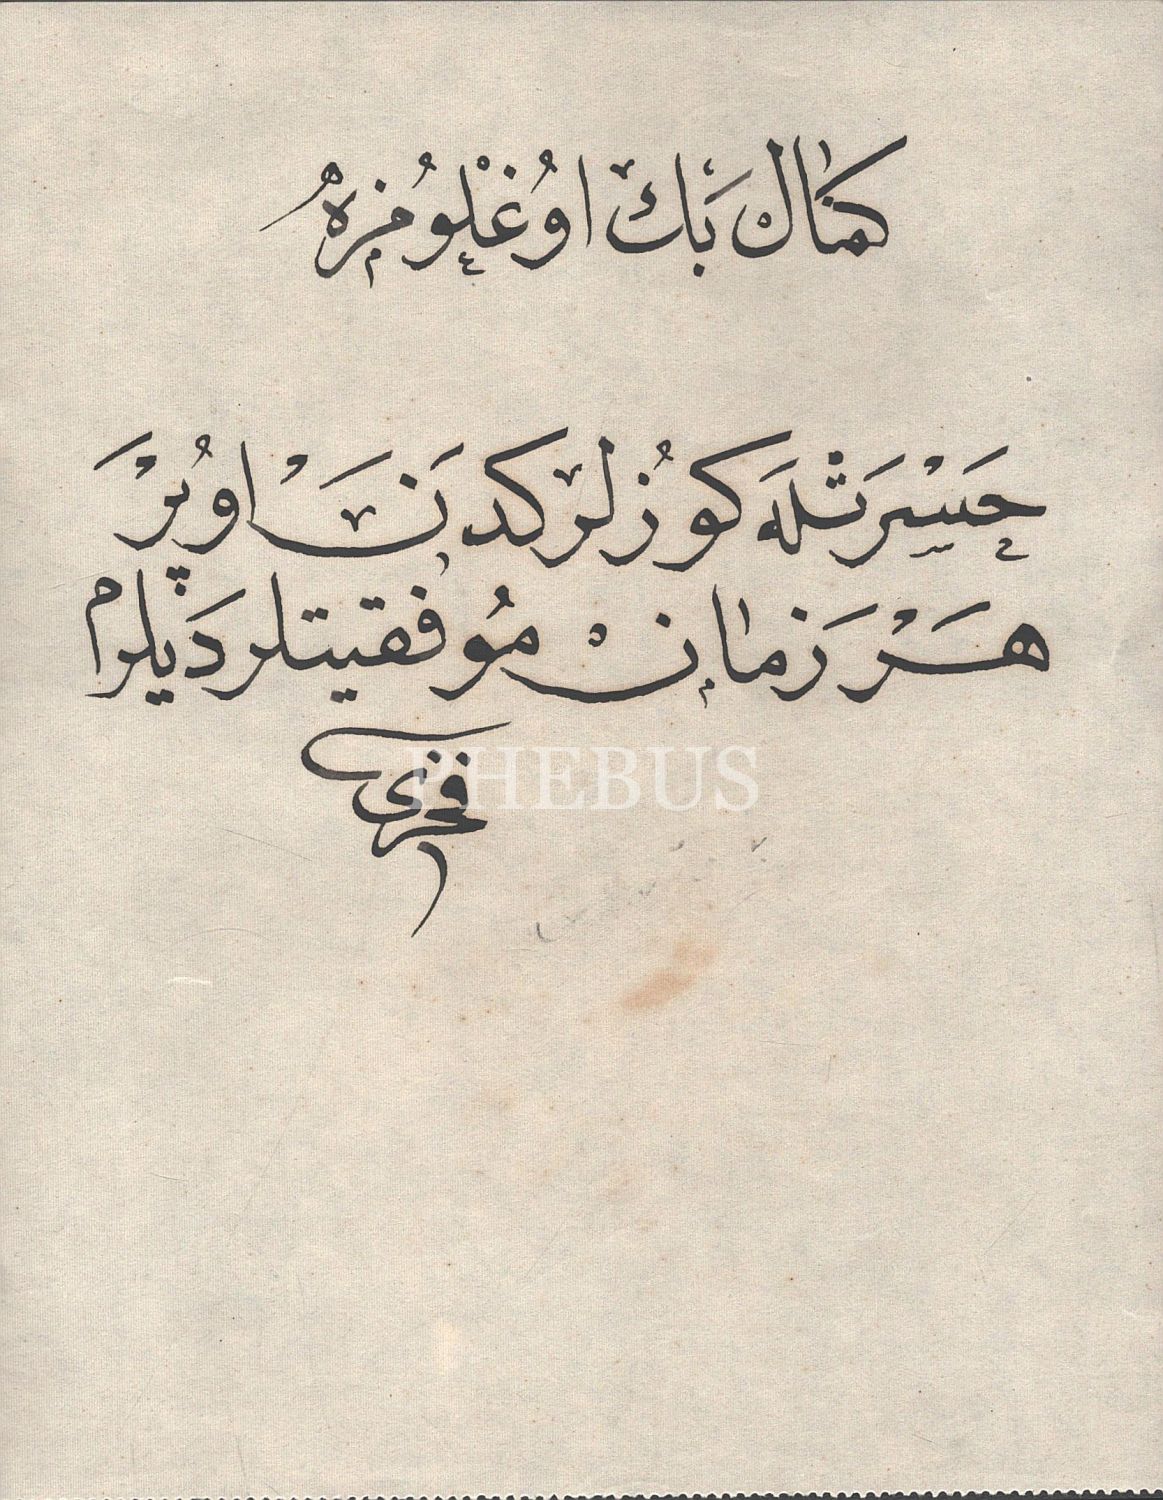 كمال بك اوغلومزه
حسرتله كوزلركدن اوپر
هر زمان موفقيتلر ديلرم
PHEBUS
فخری